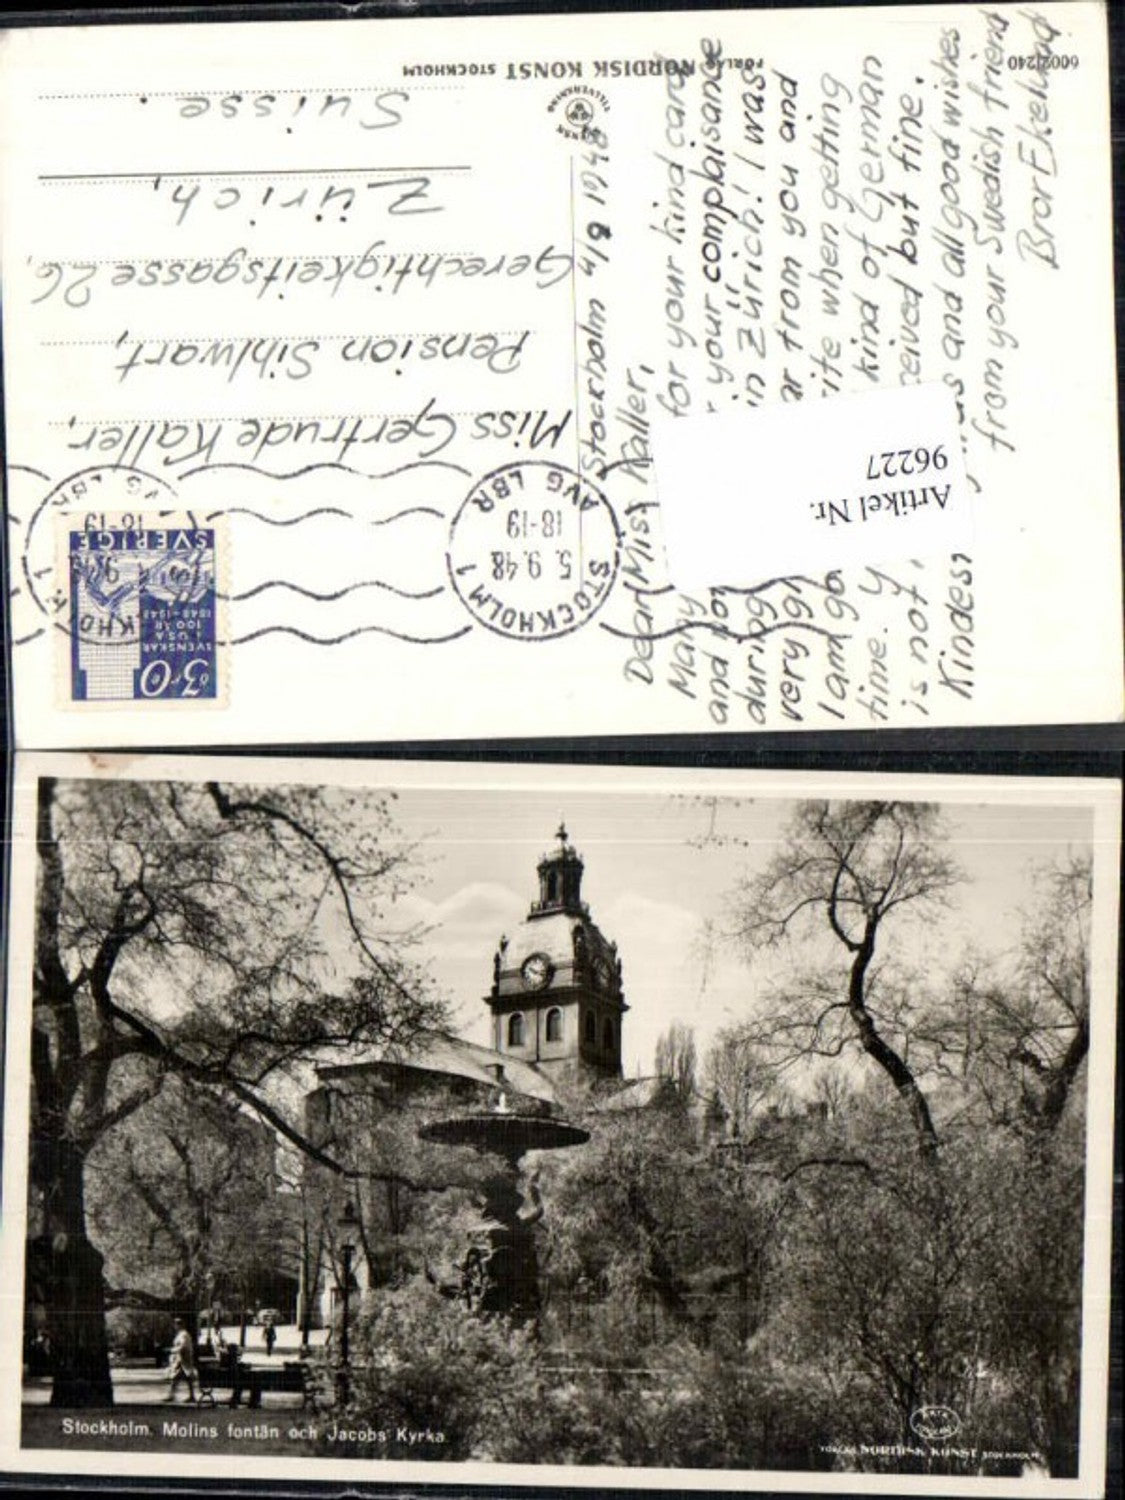 6002/240
FÖRLAG NORDISK KONST STOCKHOLM
SVENSK
TILLVERKNING
Stockholm 4/9 1948
Dear Miss Kaller,
Many for your kind card
and your complaisance
during in Zürich! I was
very ar from you and
I am ite when getting
time. kind of German
is not, ceived but fine.
Kindest and all good wishes
from your Swedish friend
Bror Ekelund
Artikel Nr.
96227
Miss Gertrude Kaller,
Pension Sihlwart,
Gerechtigkeitsgasse 26,
Zürich,
Suisse.
STOCKHOLM 1
5. 9. 48
18-19
AVG LBR
30 öre
SVENSKAR
I USA
100 ÅR
1848-1948
SVERIGE
STOCKHOLM 1
18-19
AVG LBR
Stockholm. Molins fontän och Jacobs Kyrka
FÖRLAG NORDISK KONST STOCKHOLM